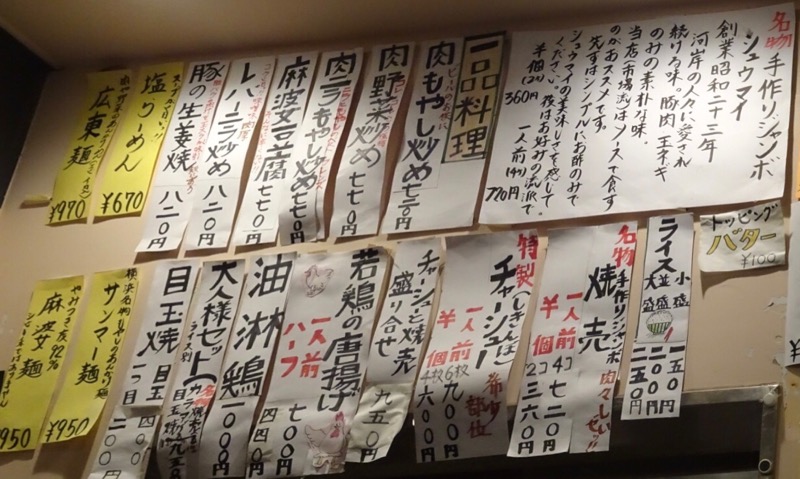 名物 手作りジャンボ
シュウマイ
創業昭和二十三年
河岸の人々に愛され
続ける味。豚肉 玉ネギ
のみの素朴な味。
当店、市場流はソースで食す
のがおススメです。
先ずはシンプルにお酢のみで
シュウマイの美味しさを感じて
ください。後はお好みの流派で。
半個(2ケ) 360円 一人前(4ケ) 720円
一品料理
肉もやし炒め 七二〇円
肉野菜炒め 七七〇円
肉ニラもやし炒め 七七〇円
麻婆豆腐 七七〇円
レバーニラ炒め 八二〇円
豚の生姜焼 八二〇円
塩らーめん
¥670
広東麺
¥970
トッピング
バター
¥100
ライス
小盛 一五〇円
並盛 二〇〇円
大盛 二五〇円
名物 手作りジャンボ
焼売
肉々しいゼッ!!
一人前 4コ 七二〇円
半個 2コ 三六〇円
特製
チャーシュー
希少部位
一人前 6枚 九〇〇円
半個 4枚 六〇〇円
チャーシュー焼売
盛り合せ
九五〇円
若鶏の唐揚げ
一人前 七〇〇円
ハーフ 四〇〇円
油淋鶏
一〇〇〇円
大人様セット
ライス別
目玉焼
一つ目 一〇〇円
二つ目 二〇〇円
サンマー麺
¥950
やみつき度92%
麻婆麺
¥950